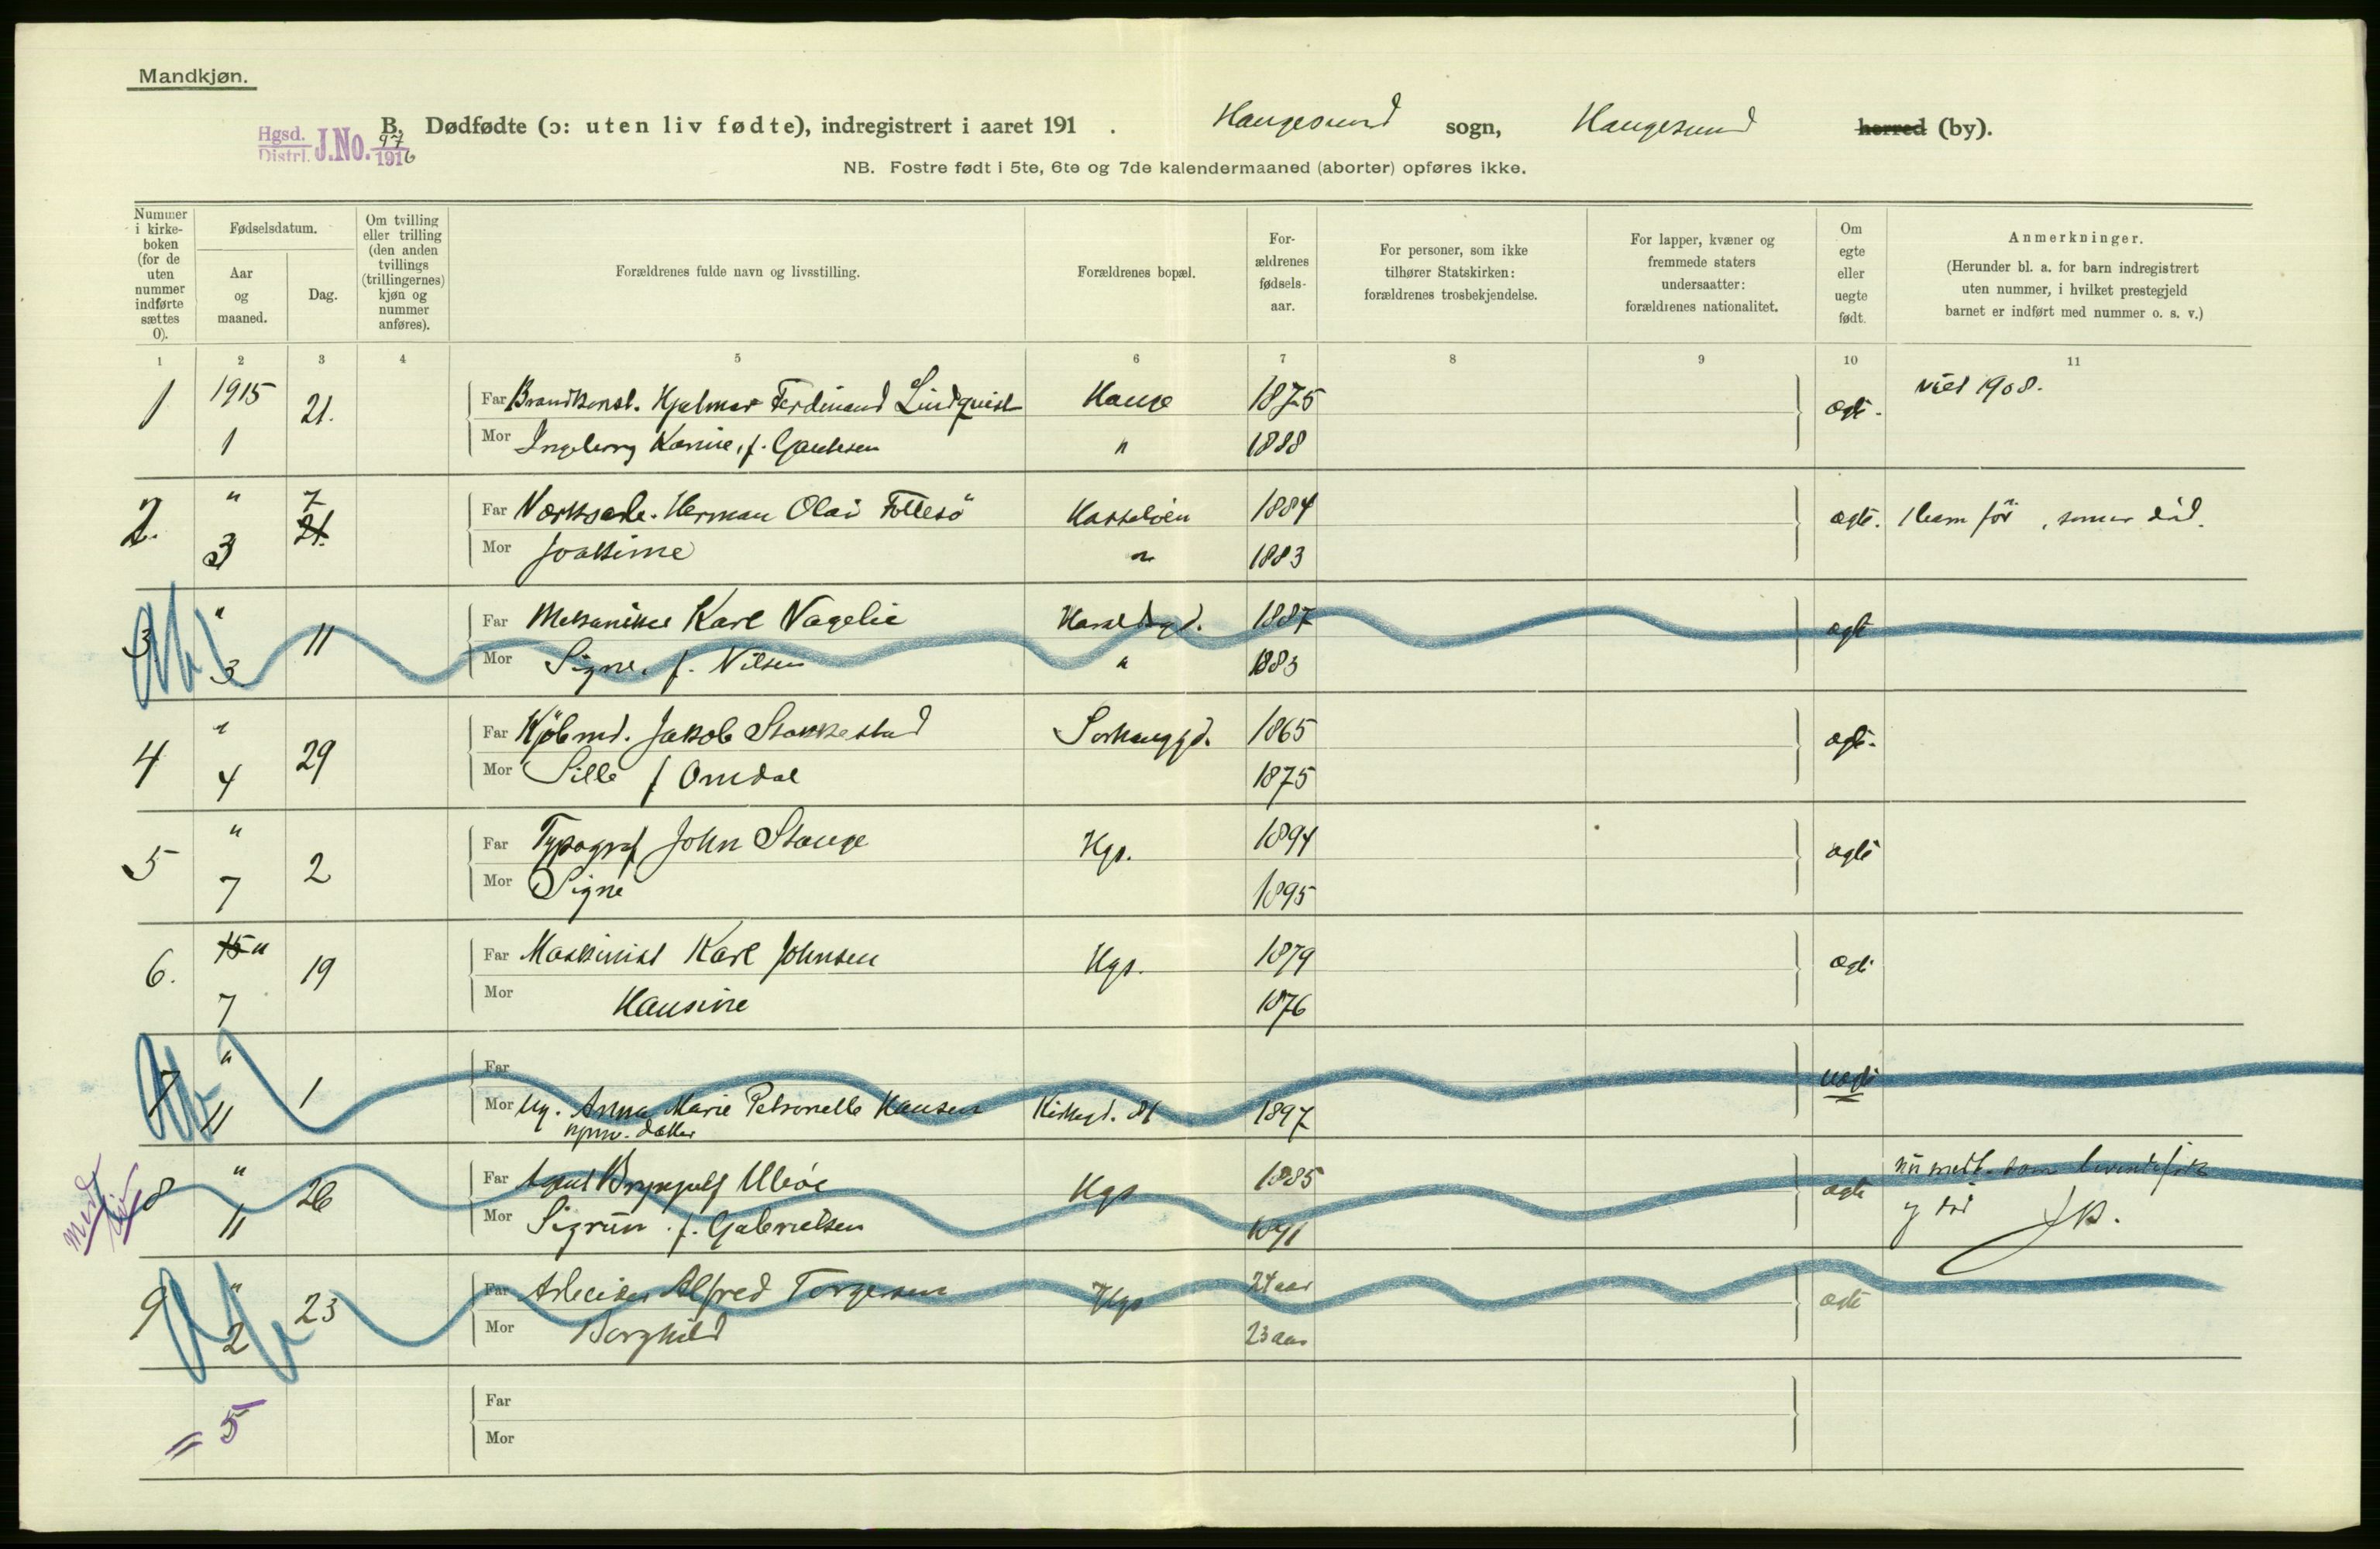 Mandkjøn.
Hgsd. Distrl. J.No. 97 1916
B. Dødfødte (ɔ: uten liv fødte), indregistrert i aaret 191 . Haugesund sogn, Haugesund herred (by).
NB. Fostre født i 5te, 6te og 7de kalendermaaned (aborter) opføres ikke.
Nummer i kirkeboken (for de uten nummer indførte sættes 0).
Fødselsdatum.
Aar og maaned.
Dag.
Om tvilling eller trilling (den anden tvillings (trillingernes) kjøn og nummer anføres).
Forældrenes fulde navn og livsstilling.
Forældrenes bopæl.
Forældrenes fødselsaar.
For personer, som ikke tilhører Statskirken: forældrenes trosbekjendelse.
For lapper, kvæner og fremmede staters undersaatter: forældrenes nationalitet.
Om egte eller uegte født.
Anmerkninger.
(Herunder bl. a. for barn indregistrert uten nummer, i hvilket prestegjeld barnet er indført med nummer o. s. v.)
1 2 3 4 5 6 7 8 9 10 11
1 1915 1 21. Far Brandkonst. Hjalmar Ferdinand Lindquist Hauge 1875 ægte. viet 1908.
Mor Ingeborg Karine, f. Gautesen " 1888
2. " 3 7 21. Far Herman Olai Føllesø 1884 ægte. 1 barn før, som er død.
Mor Joakime " 1883
3 " 3 11 Far Mekaniker Karl Vagelie Haraldsgd. 1887 ægte
Mor Signe, f. Nilsen " 1883
4 " 4 29 Far Kjöbmd. Jakob Stakkestad Sørhauggd. 1865 ægte.
Mor Sille f Omdal 1875
5 " 7 2 Far Typograf John Stange Hgs. 1894 ægte
Mor Signe 1895
6. 15 " 7 19 Far Maskinist Karl Johnsen Hgs. 1879 ægte
Mor Hansine 1876
7 " 11 1 Far uægte
Mor Ug. Anna Marie Petronelle Hansen Kirkegd. 81 1897
8 " 11 26 Far Agent Brynjulf Hgs 1885 ægte
Mor Sigrun f. Gabrielsen 1891
og død
9 " 2 23 Far Arbeider Alfred Torgersen Hgs 24 aar ægte
Mor Borghild 23 aar
= 5
Far
Mor